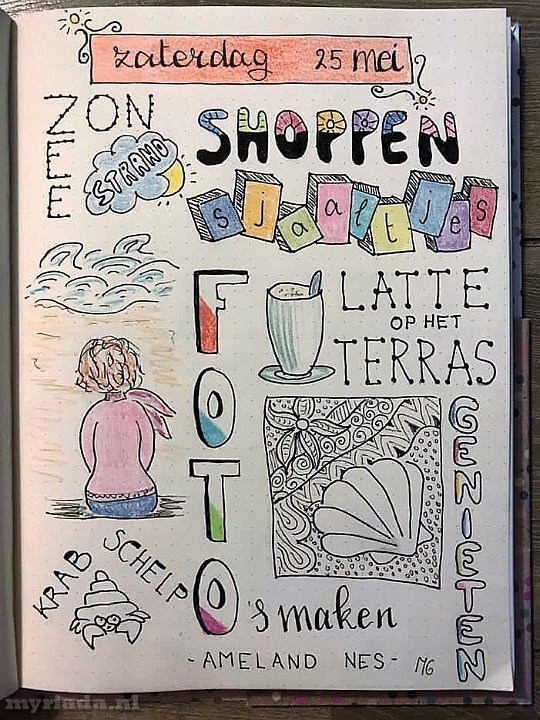 zaterdag 25 mei
ZON
ZEE
STRAND
SHOPPEN
sjaaltjes
LATTE
OP HET
TERRAS
FOTO's maken
GENIETEN
KRAB
SCHELP
- AMELAND NES -
MG
myriada.nl